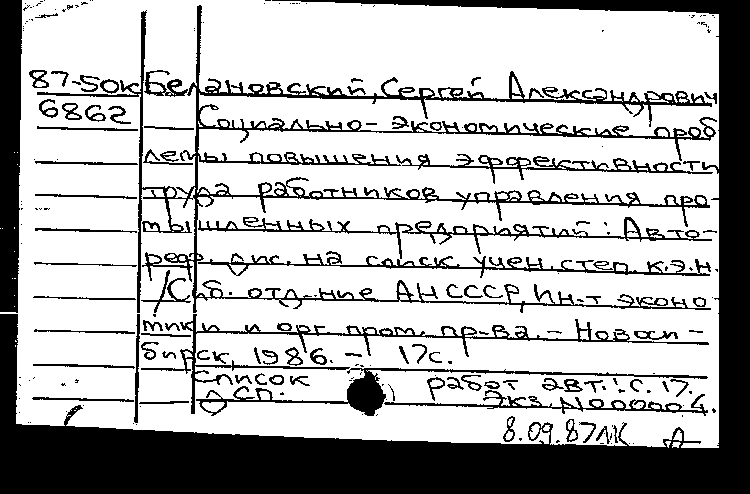 87-50к Белановский, Сергей Александрович
6862 Социально-экономические проб
лемы повышения эффективности
труда работников управления про-
мышленных предприятий: Авто-
реф. дис. на соиск. учен. степ. к.э.н.
/Сиб. отд-ние АН СССР, Ин-т эконо
мики и орг. пром. пр-ва. - Новоси-
бирск, 1986. - 17с.
Список работ авт.: с. 17.
СП. Экз. N000004.
8.09.87 ЛК